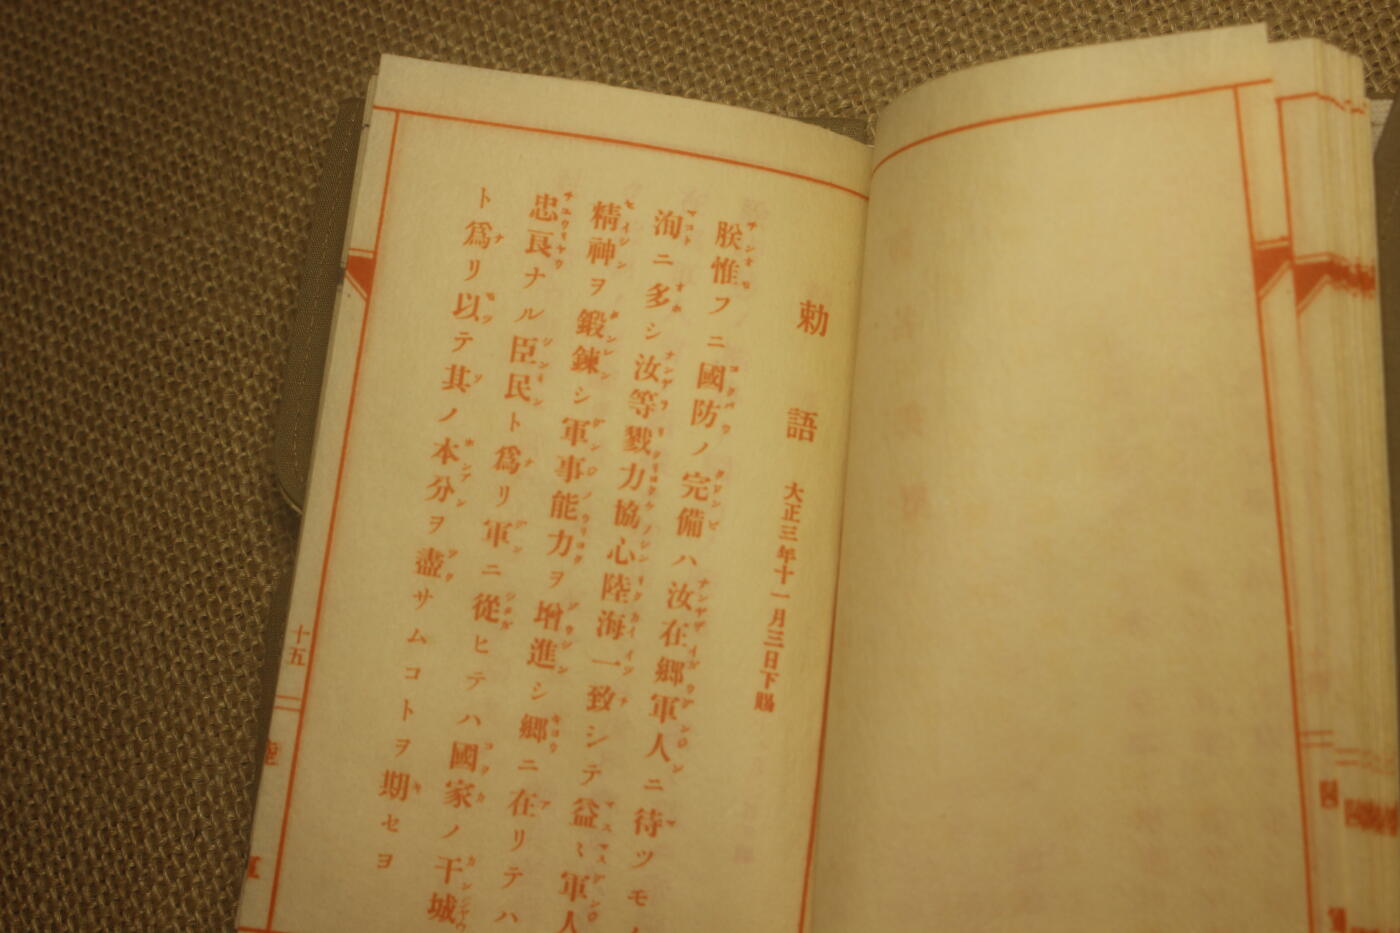 勅語 大正三年十一月三日下賜
朕惟フニ國防ノ完備ハ汝在郷軍人ニ待ツモ
洵ニ多シ汝等戮力協心陸海一致シテ益〻軍人
精神ヲ鍛錬シ軍事能力ヲ增進シ郷ニ在リテハ
忠良ナル臣民ト爲リ軍ニ從ヒテハ國家ノ干城
ト爲リ以テ其ノ本分ヲ盡サムコトヲ期セヨ
十五